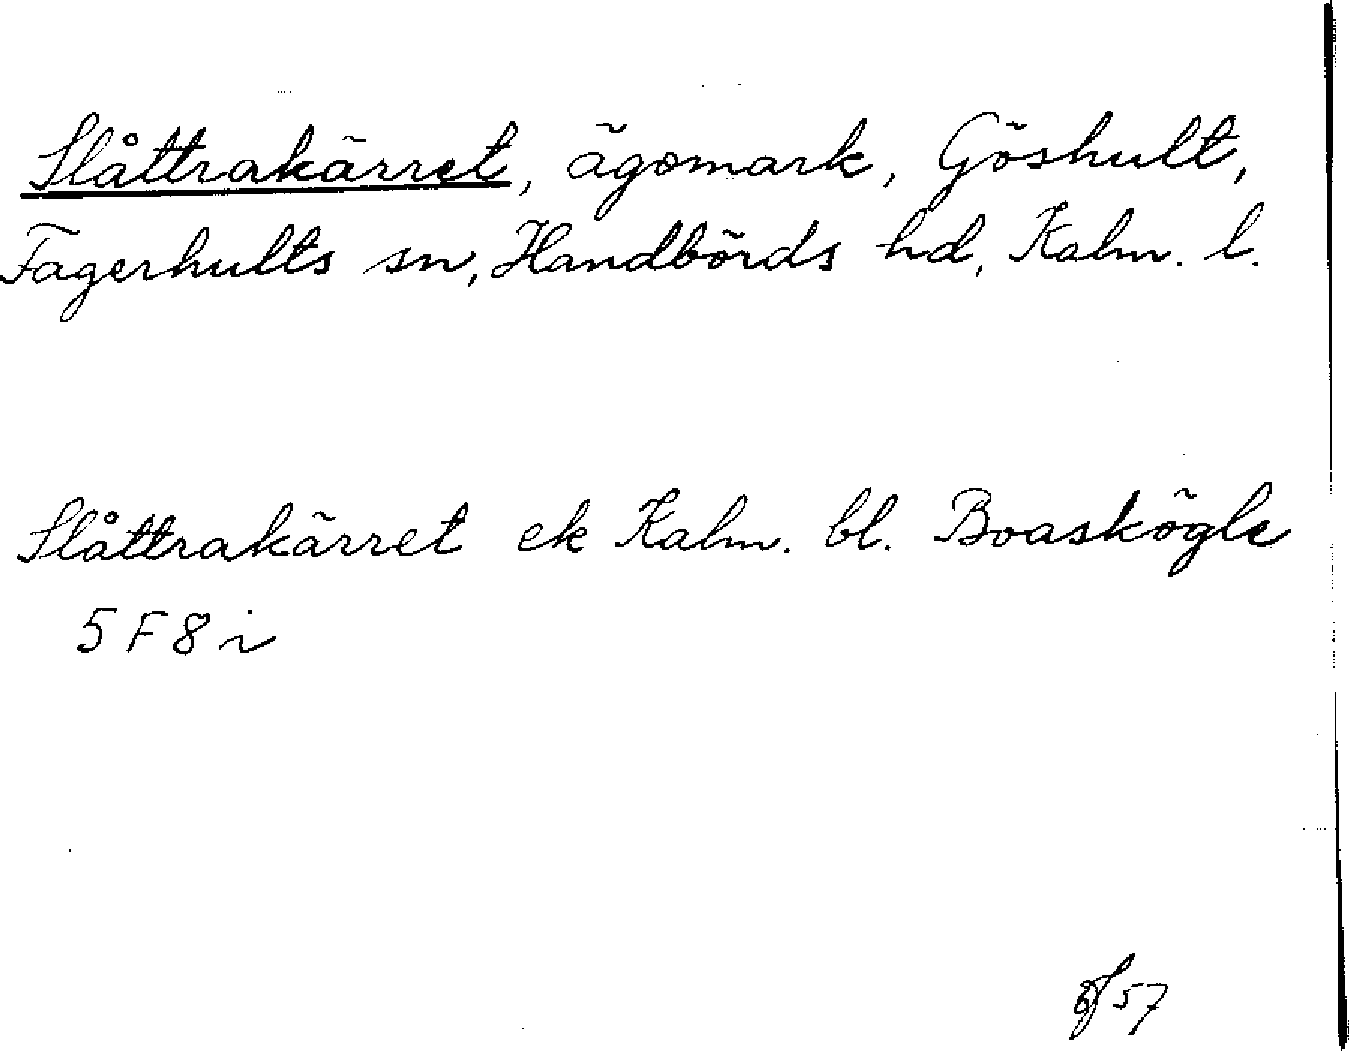 Slåttrakärret, ägomark, Göshult,
Fagerhults sn, Handbörds hd, Kalm. l.
Slåttrakärret ek Kalm. bl. Boaskögle
5 F 8 i
57